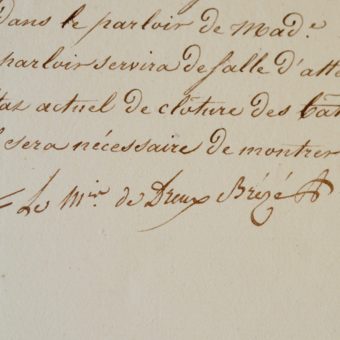 Dans le parloir de Mad.e
parloir servira de salle d'atte
tat actuel de clôture des bât
sera nécessaire de montrer
Le M.is de Dreux Brézé